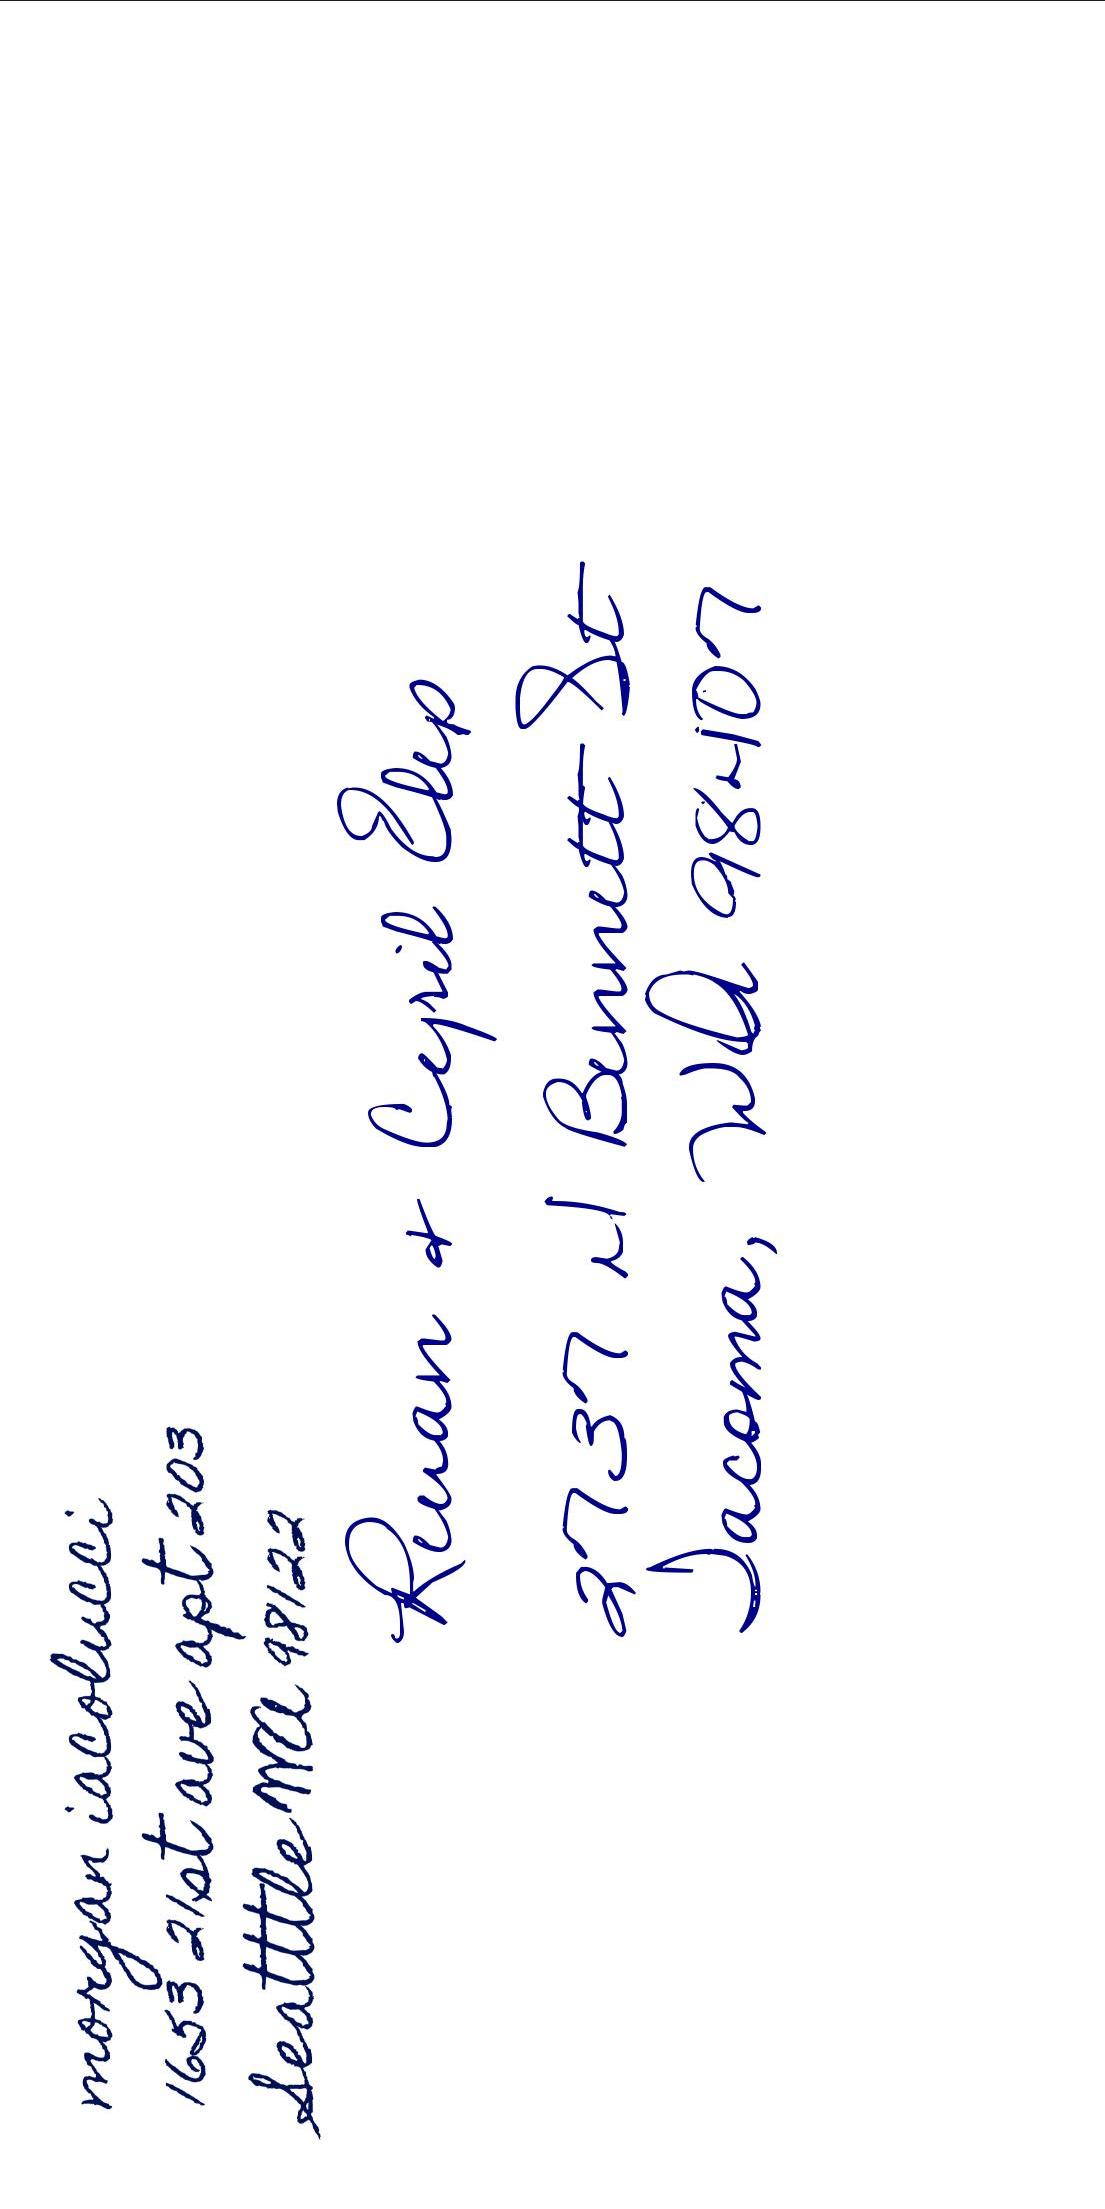 morgan iacolucci
1653 21st ave apt 203
Seatttle WA 98122
& Cyril
3737 N Bennett St
Tacoma, WA 98407